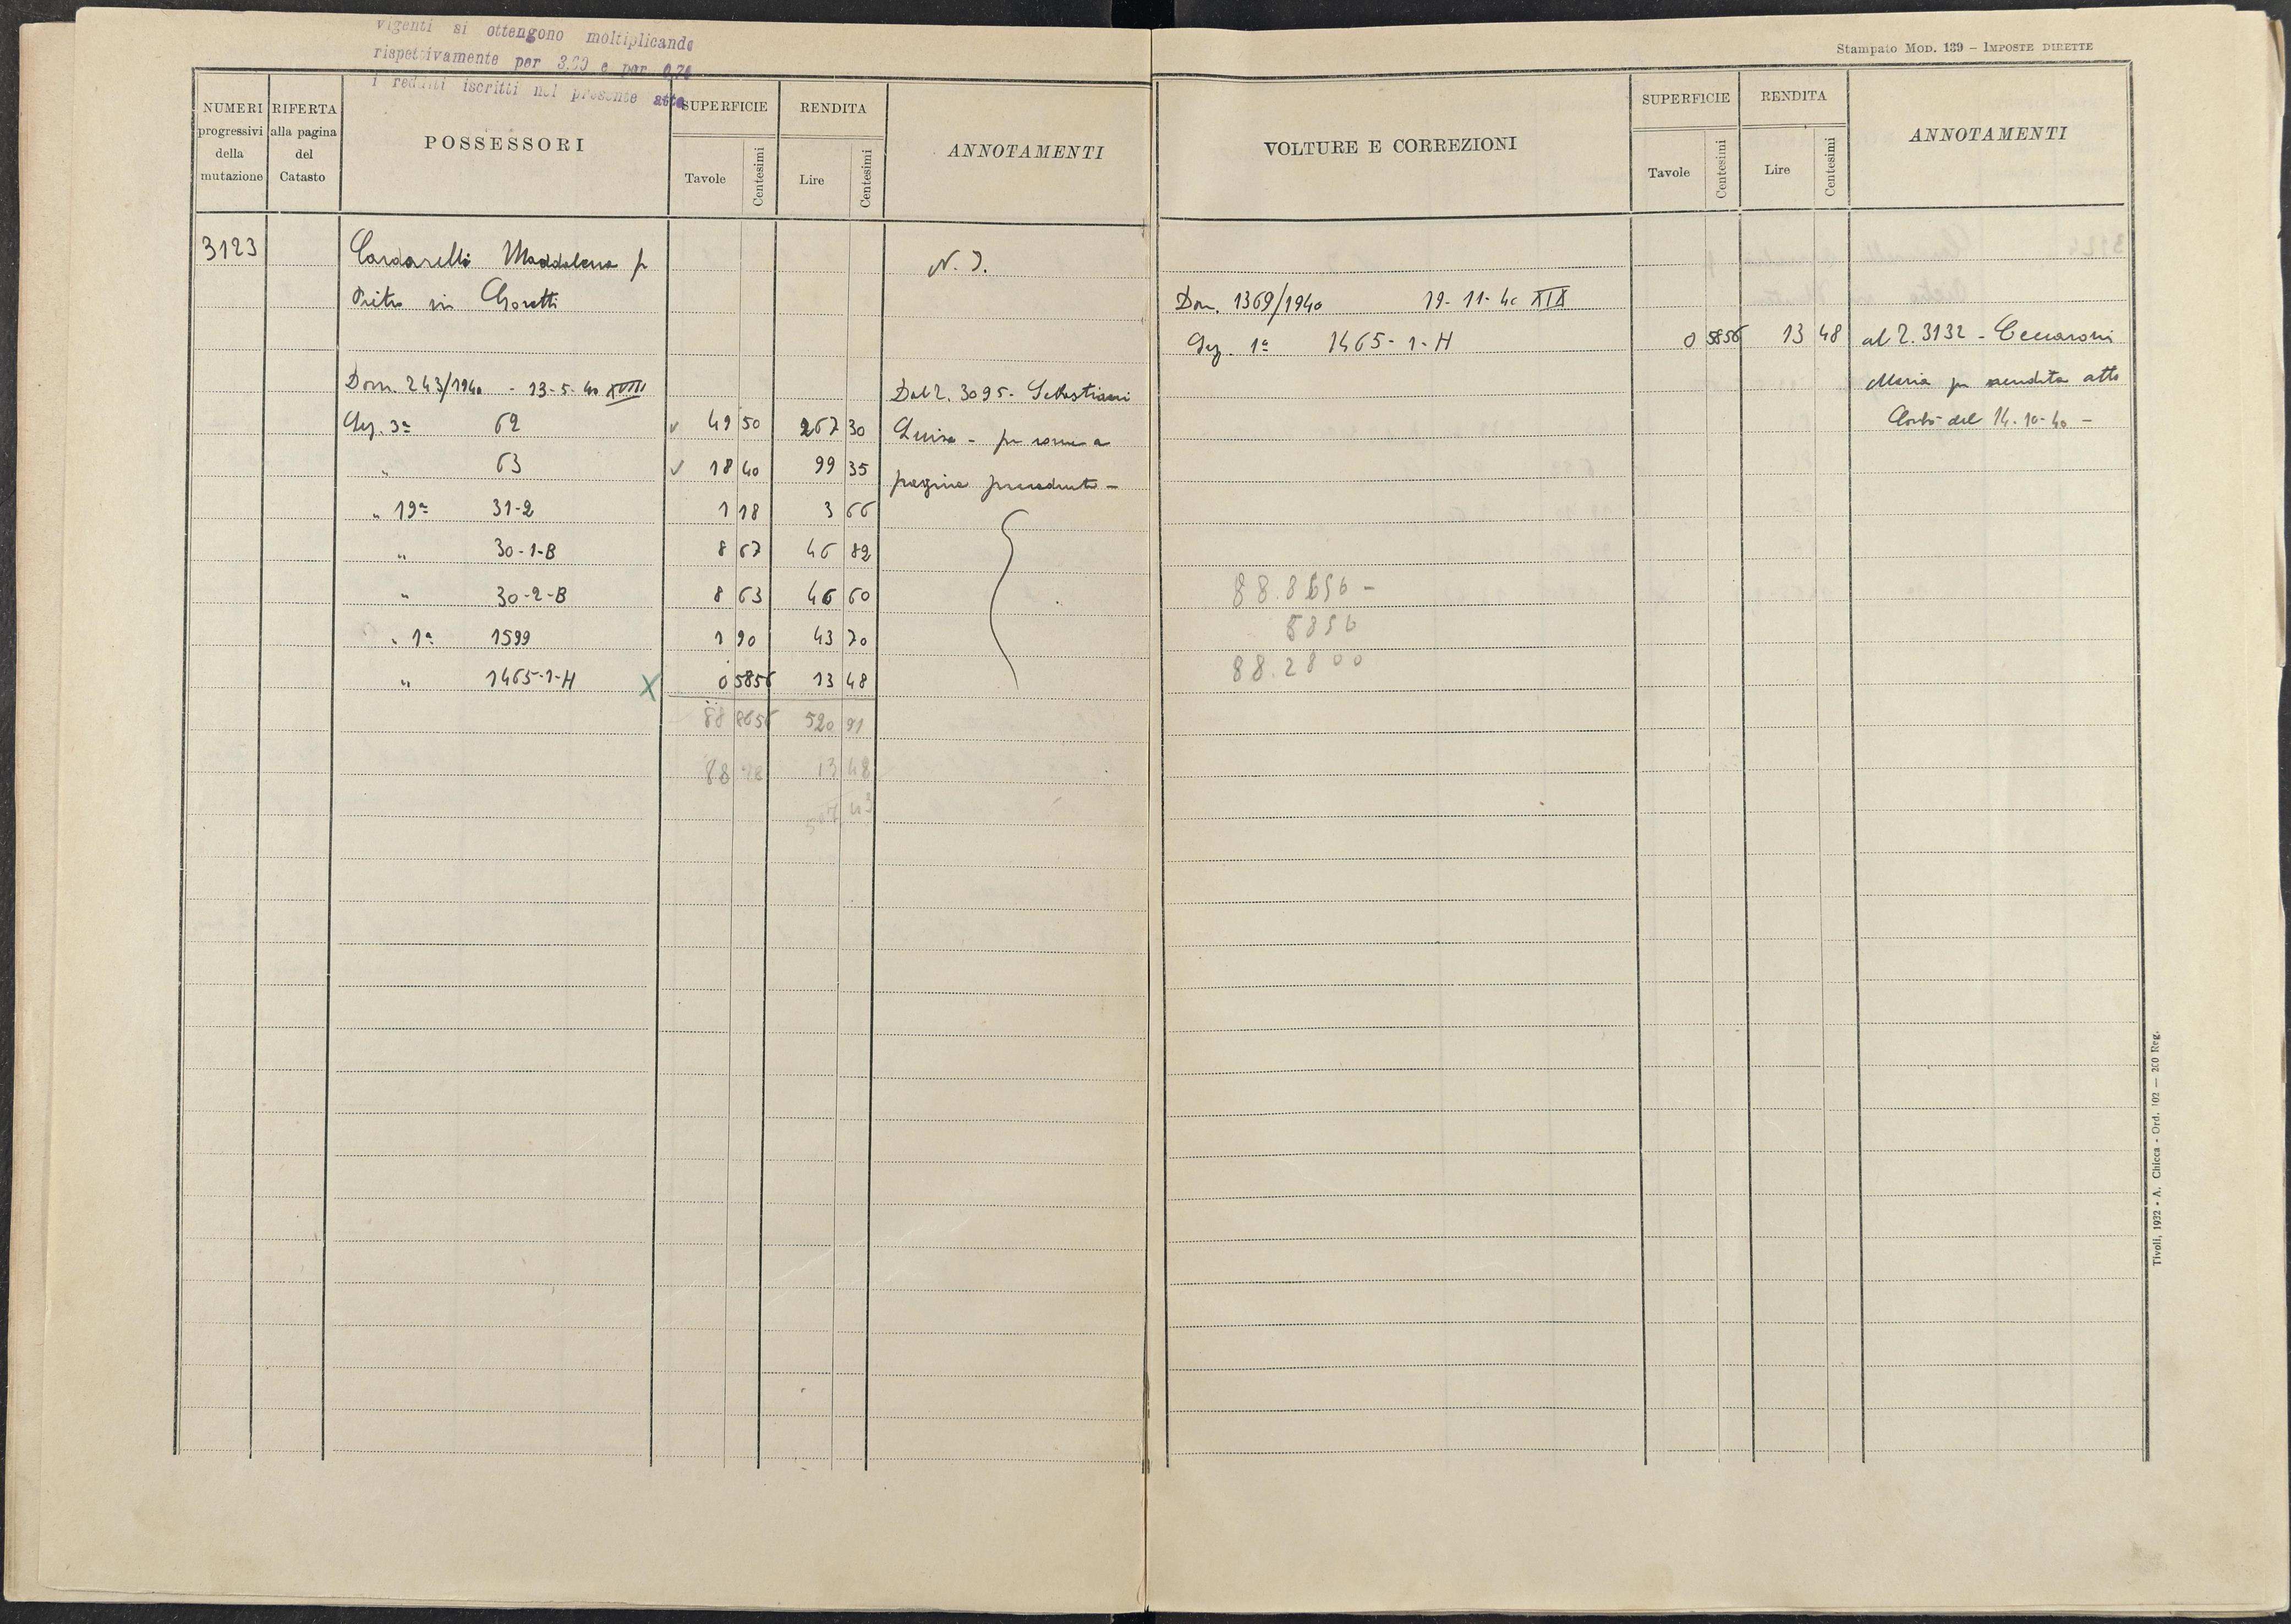 vigenti si ottengono moltiplicando
rispettivamente per 3.90 e per 0,74
i redditi iscritti nel presente atto
NUMERI progressivi della mutazione
RIFERTA alla pagina del Catasto
POSSESSORI
SUPERFICIE
Tavole Centesimi
RENDITA
Lire Centesimi
ANNOTAMENTI
3123 Cardarelli Maddalena fu N. I.
Pietro in Goretti
Dom. 243/1940 - 13-5-40 XVIII Dal 2. 3095 - Sebastiani
Sez. 3ª 62 49 50 267 30 Luisa - per come a
" 63 18 40 99 35 pagina precedente -
" 19ª 31-2 1 18 3 66
" 30-1-B 8 67 46 82
" 30-2-B 8 63 46 60
" 1ª 1599 1 90 43 70
" 1465-1-H X 0 5856 13 48
88 8656 520 91
88 28 13 48
507 43
Stampato MOD. 139 – IMPOSTE DIRETTE
VOLTURE E CORREZIONI
SUPERFICIE
Tavole Centesimi
RENDITA
Lire Centesimi
ANNOTAMENTI
Dom. 1369/1940 19-11-40 XIX
Sez. 1ª 1465-1-H 0 5856 13 48 al 2. 3132 - Ceccaroni
Maria per vendita atto
del 14-10-40 -
88.8656 -
5856
88.2800
Tivoli, 1932 - A. Chicca - Ord. 102 — 200 Reg.